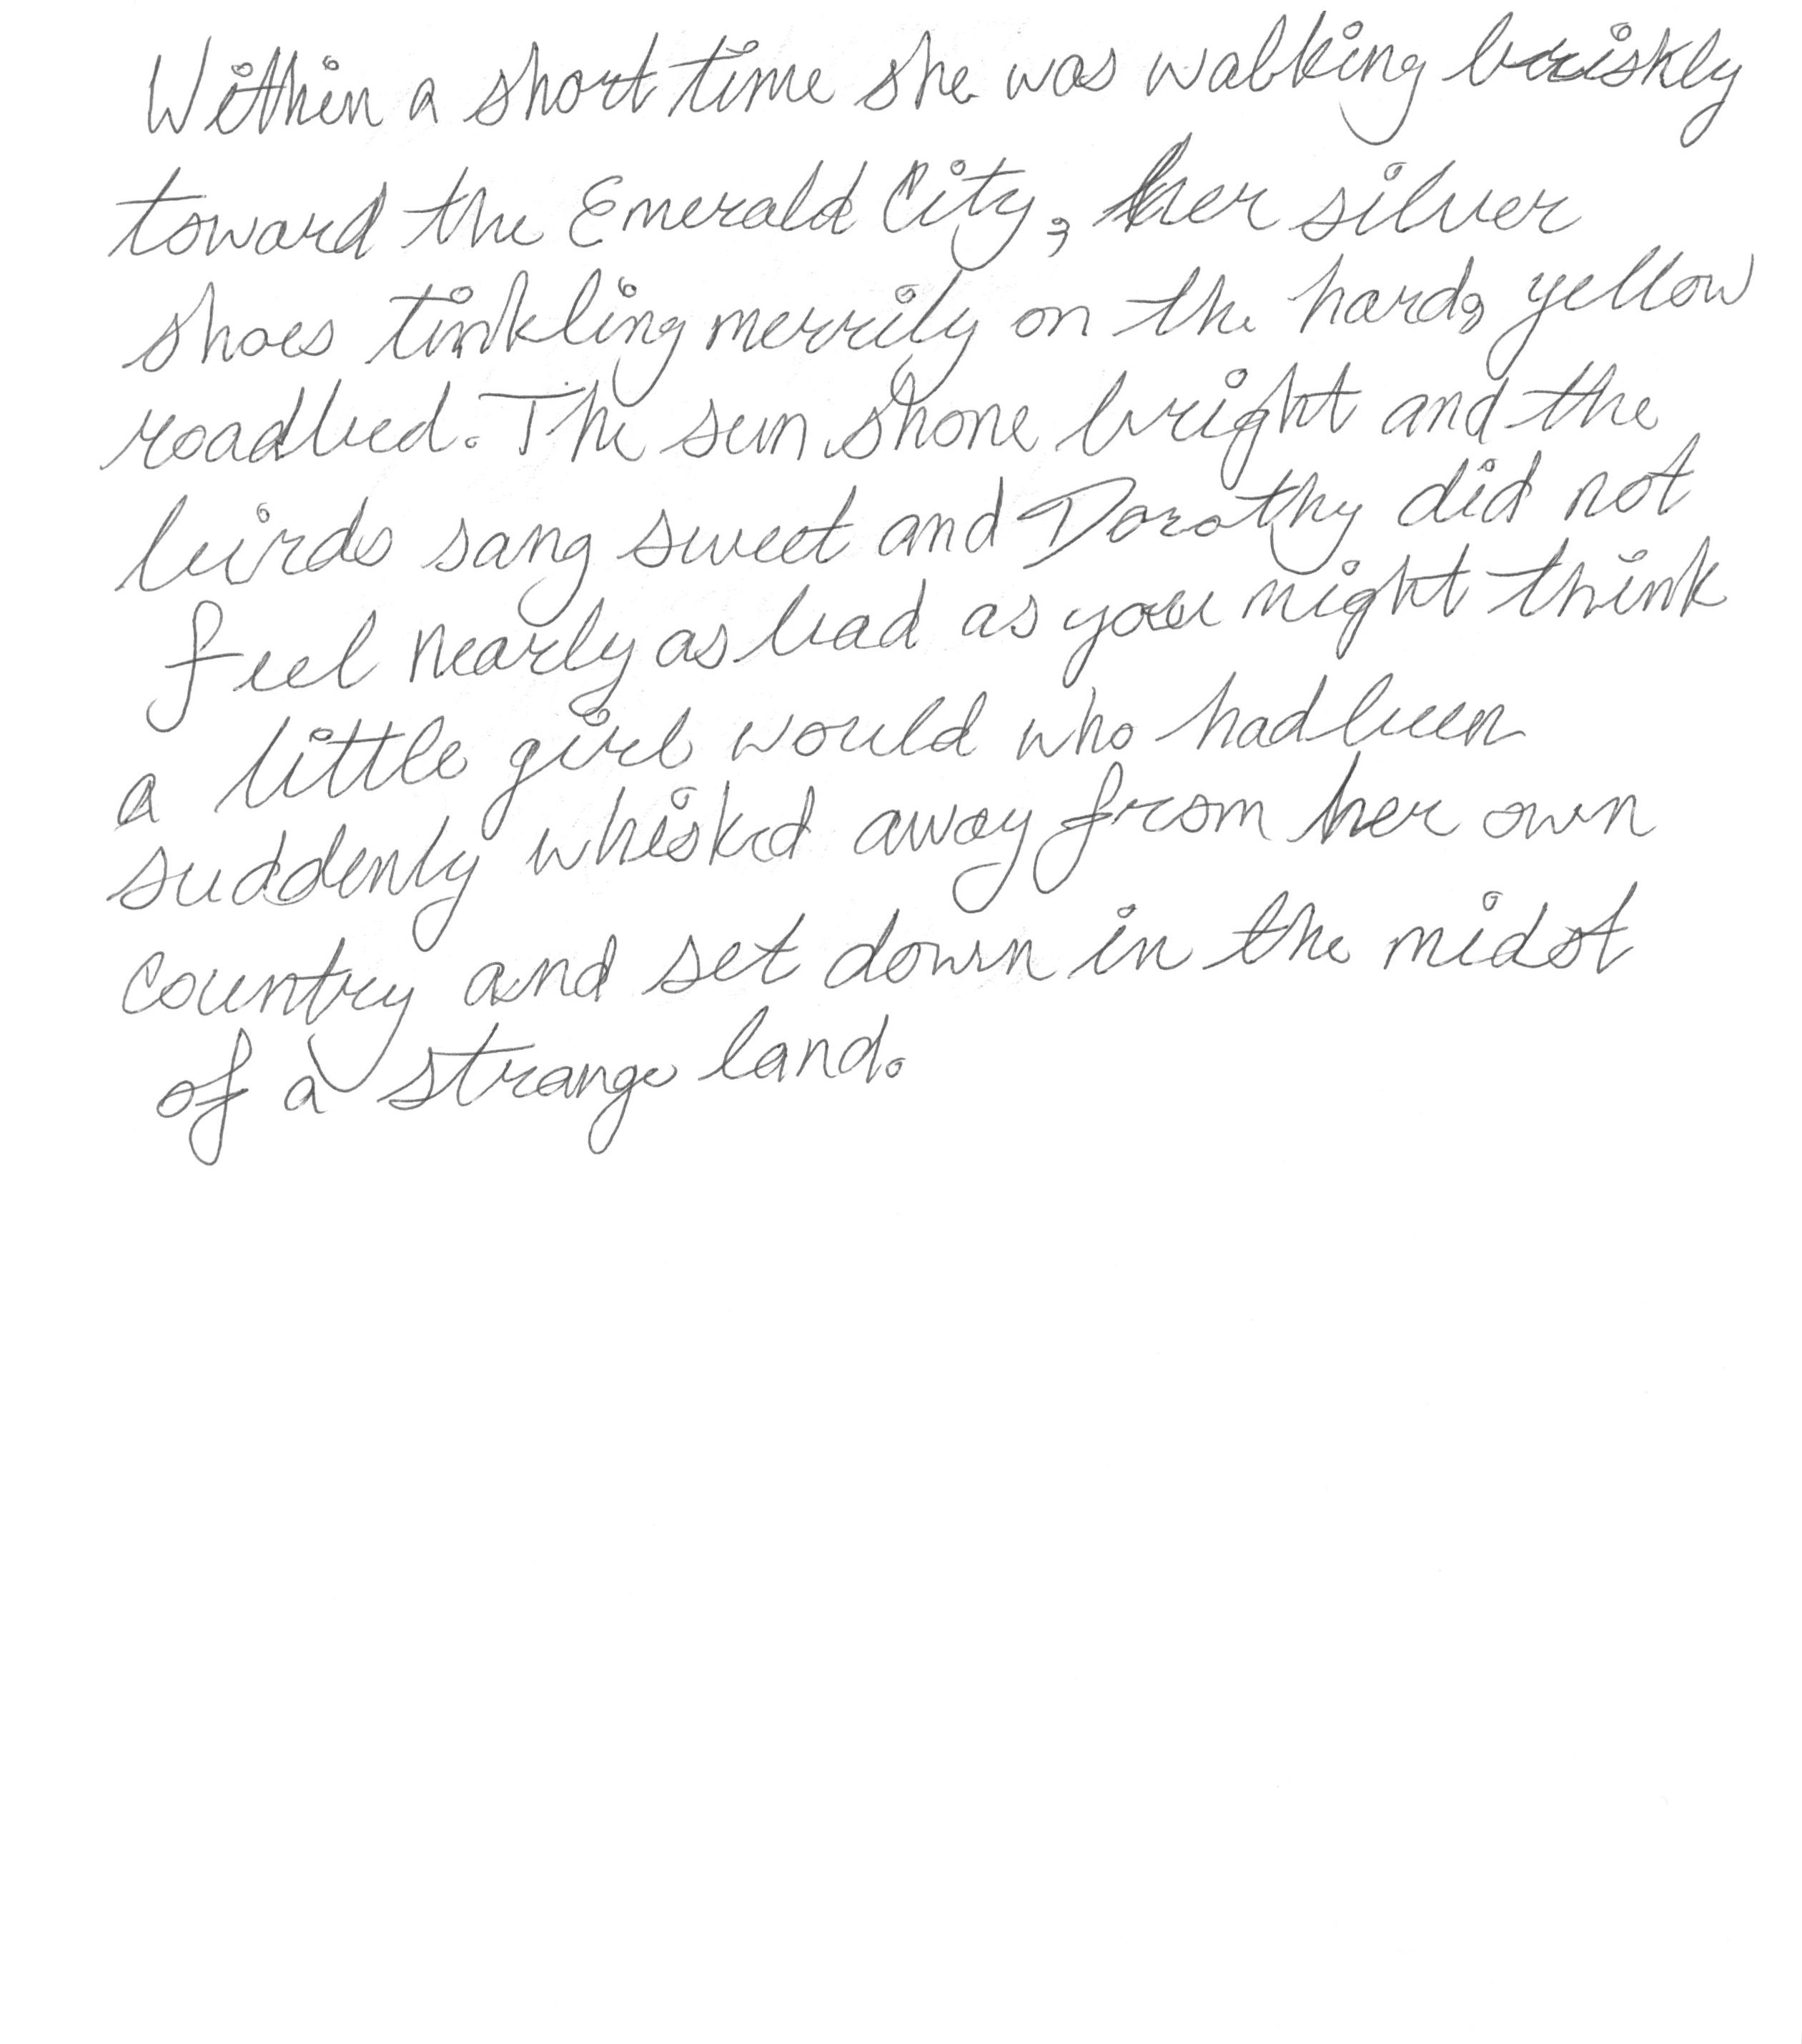 Within a short time she was walking briskly
toward the Emerald City, her silver
shoes tinkling merrily on the hard, yellow
roadbed. The sun shone bright and the
birds sang sweet and Dorothy did not
feel nearly as bad as you might think
a little girl would who had been
suddenly whisked away from her own
country and set down in the midst
of a strange land.